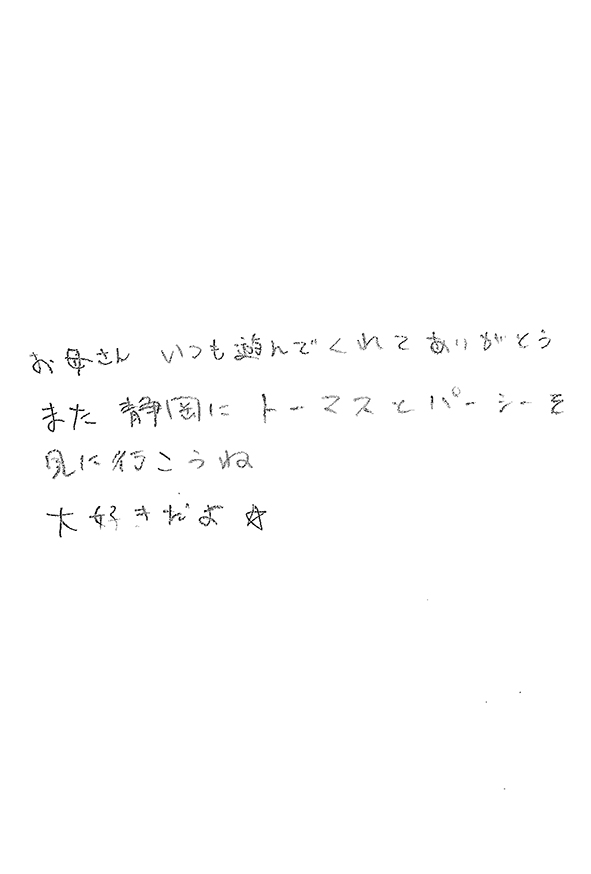 お母さん いつも遊んでくれてありがとう
また 静岡に トーマスとパーシーを
見に行こうね
大好きだよ ☆